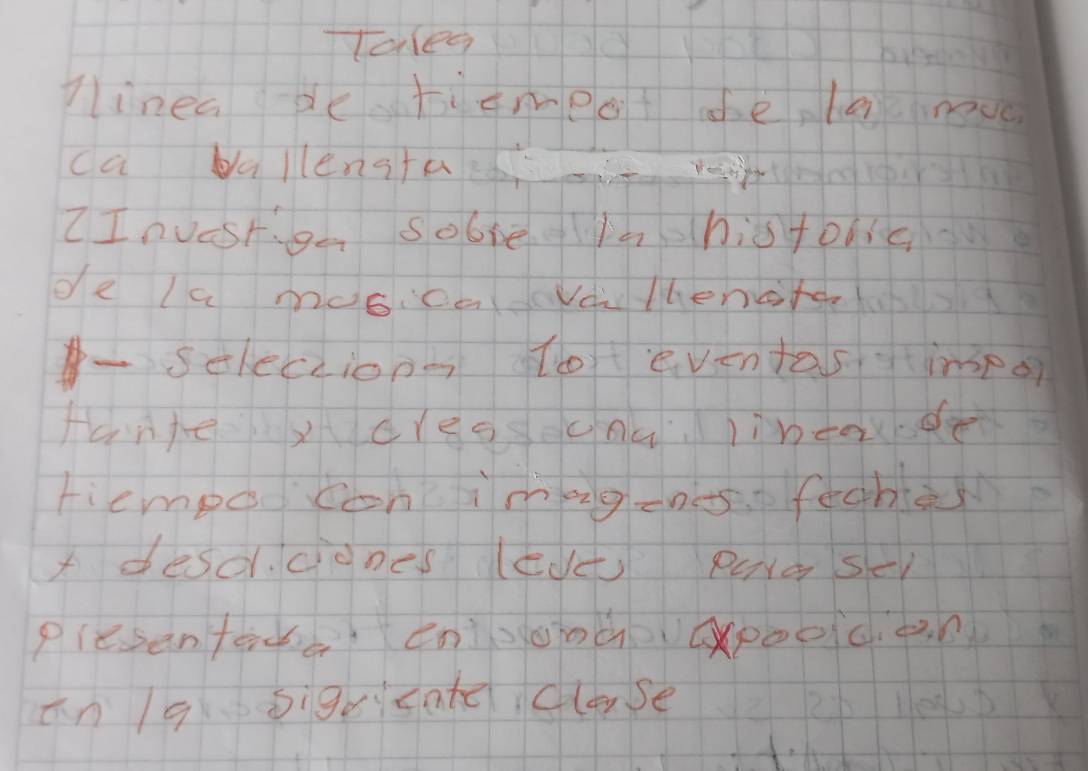 Talea
1linea de tiempo de la muci
ca vallenata
2Investiga sobre la historia
de la musica vallenata
- selecciona lo eventos impor
tante y crea una linea de
tiempo con imagenes fechas
y descriciones leves para ser
presentada en una expocicion
en la siguiente clase